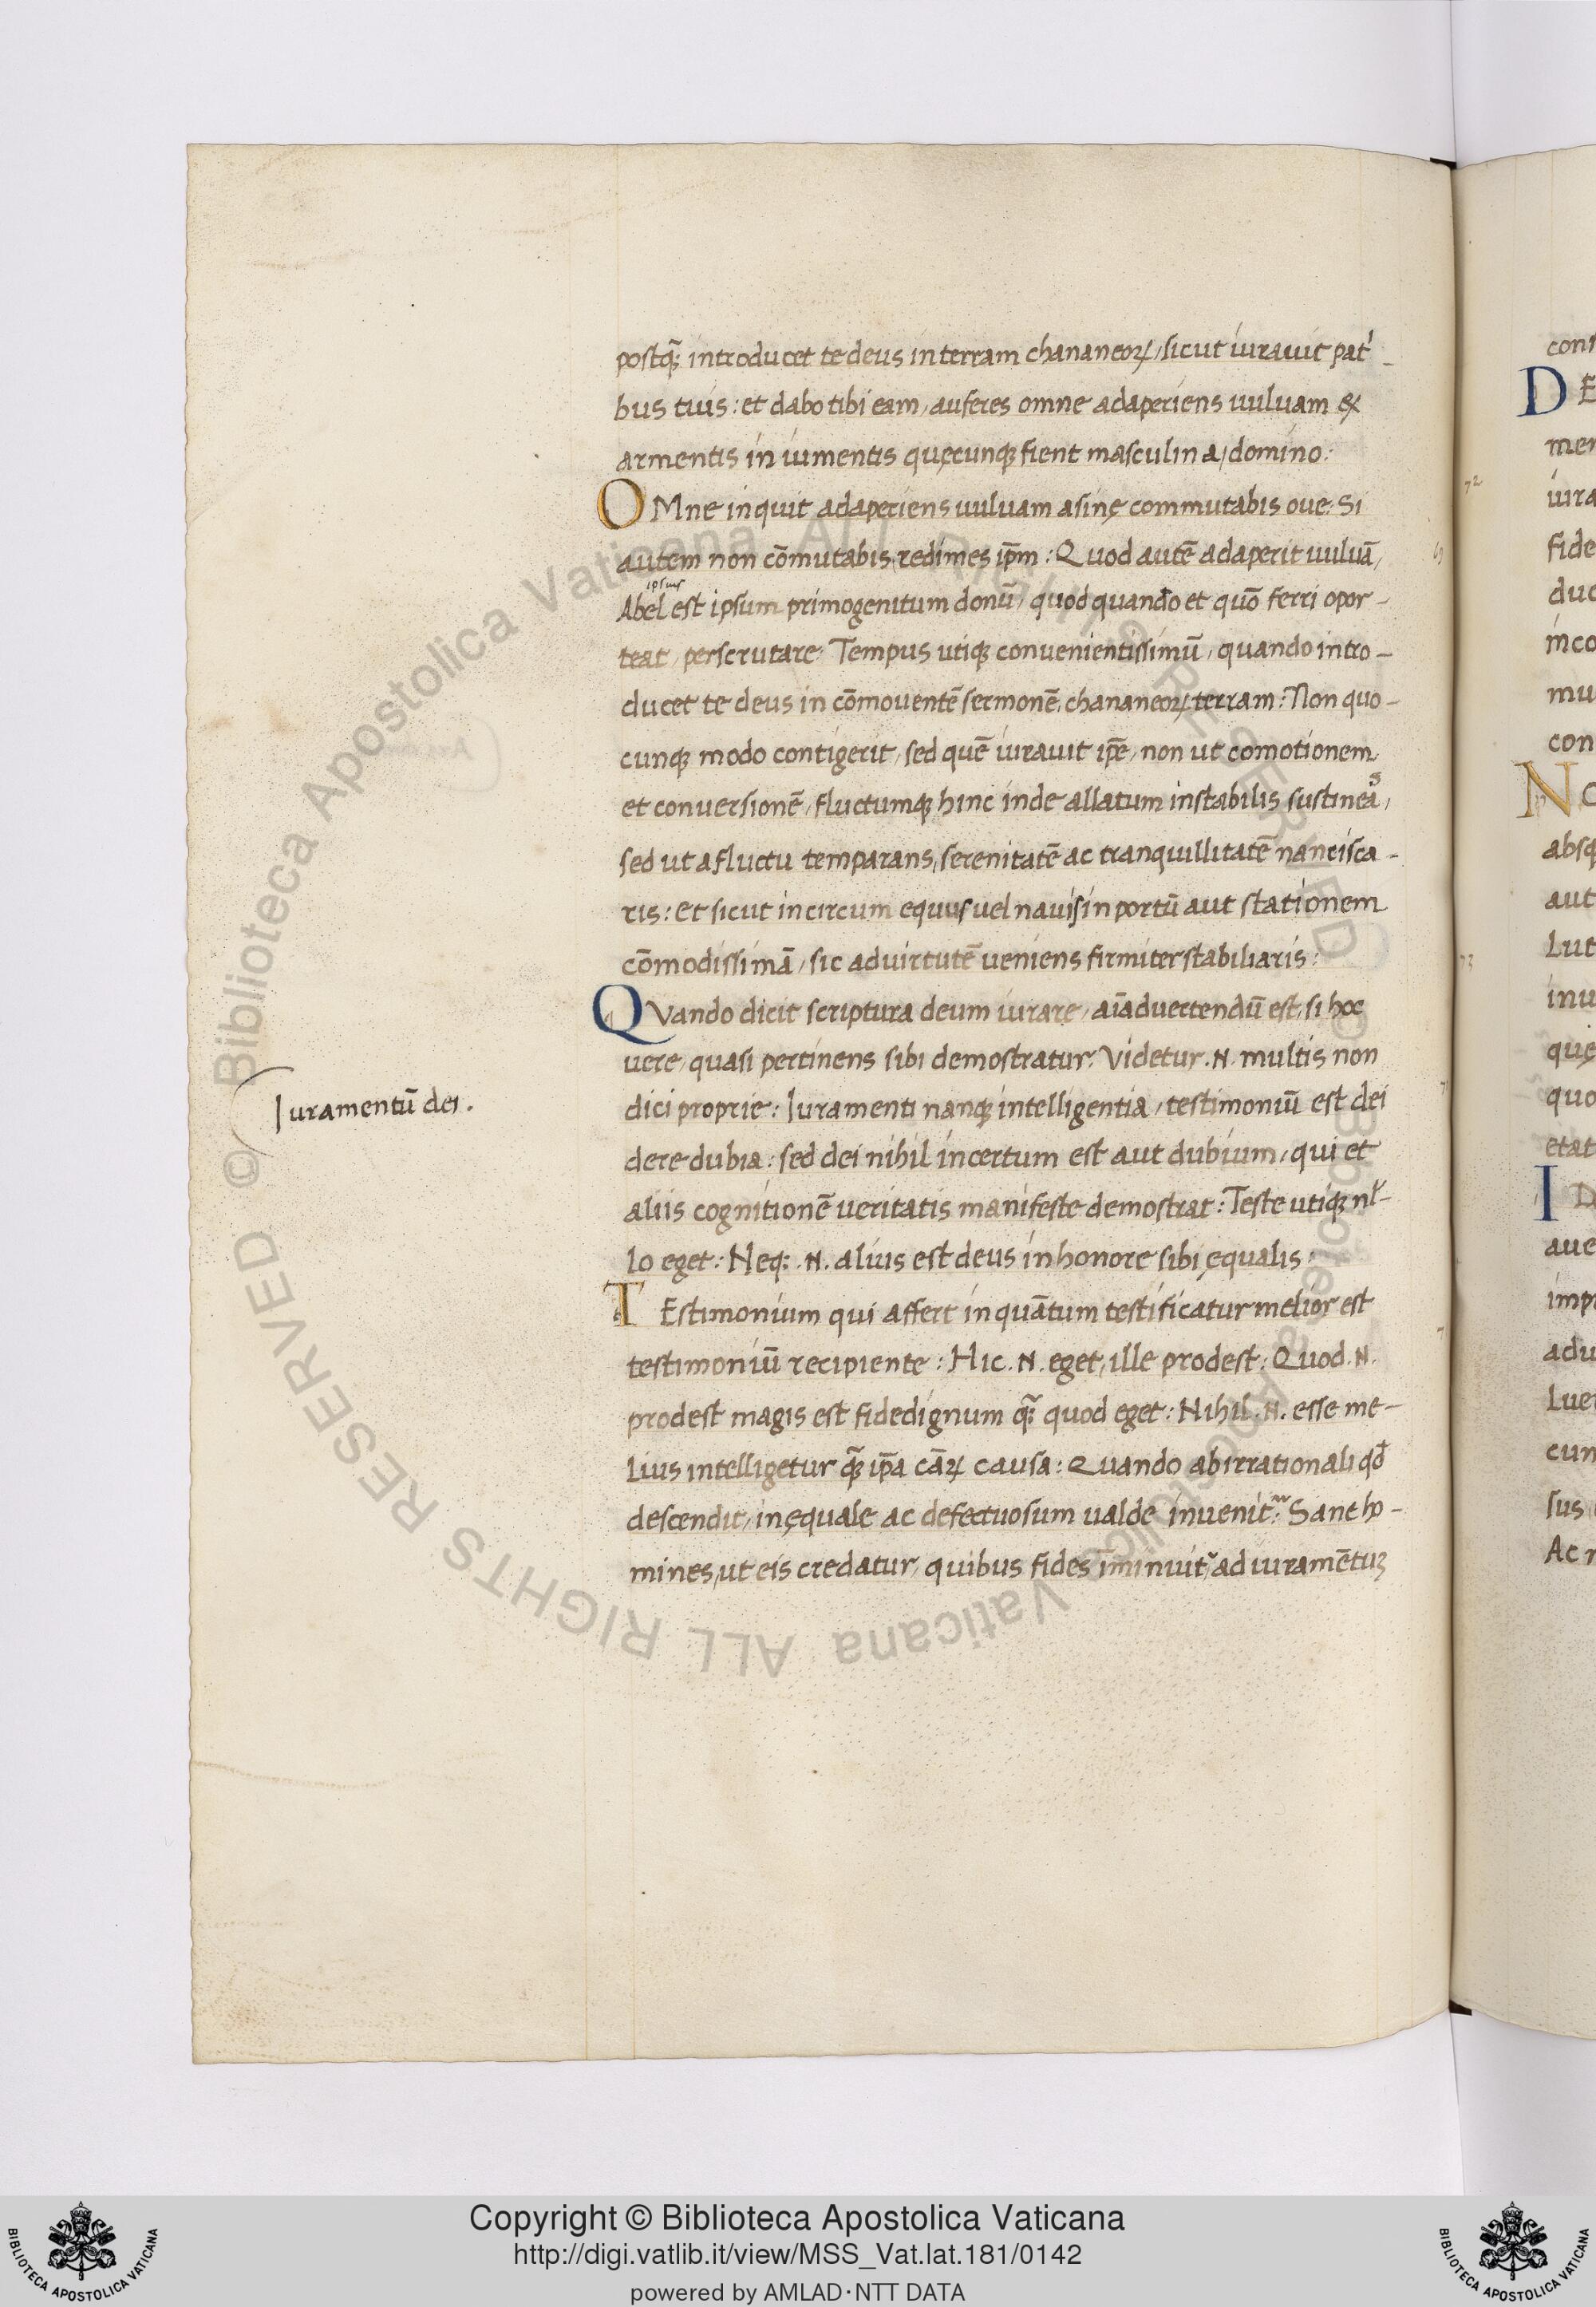 postq̃ introducet te deus in terram chananeoꝝ, sicut iurauit pat̾ -
bus tuis: et dabo tibi eam, auferes omne adaperiens uuluam ex
armentis in iumentis quęcunqꝫ fient masculina, domino:
OMne inquit adaperiens uuluam asinę commutabis oue. Si
autem non cōmutabis redimes ip̄m: Quod autē adaperit uuluā,
ipsius
Abel est ipsum primogenitum donū, quod quando et quō ferri opor -
teat, perscrutare. Tempus utiqꝫ conuenientissimū, quando intro -
ducet te deus in cōmouentē sermonē, chananeoꝝ terram: Non quo -
cunqꝫ modo contigerit, sed quē iurauit ip̄e, non ut comotionem
et conuersionē, fluctumqꝫ hinc inde allatum instabilis sustineas,
sed ut a fluctu temparans, serenitatē ac tranquillitatē nancisca -
ris: Et sicut in circum equus uel nauis in portū aut stationem
cōmodissimā, sic ad uirtutē ueniens firmiter stabiliaris:
QVando dicit scriptura deum iurare, aīaduertendū est, si hoc
uere, quasi pertinens sibi demostratur. Videtur .N. multis non
dici proprie: Iuramenti nanqꝫ intelligentia, testimoniū est dei
Iuramentū dei.
de re dubia: sed dei nihil incertum est aut dubium, qui et
aliis cognitionē ueritatis manifeste demostrat: Teste utiqꝫ nł -
lo eget: Neqꝫ .N. alius est deus in honore sibi ęqualis:
TEstimonium qui affert inquātum testificatur melior est
testimoniū recipiente: Hic .N. eget, ille prodest: Quod .N.
prodest magis est fidedignum q̃ꝫ quod eget: Nihil .N. esse me -
lius intelligetur q̃ꝫ ip̄a cāꝝ causa: Quando ab irrationali qđ
descendit, inęquale ac defectuosum ualde inuenit᷑: Sane ho -
mines, ut eis credatur, quibus fides īminuit᷑, ad iuramētuꝫ
Copyright © Biblioteca Apostolica Vaticana
http://digi.vatlib.it/view/MSS_Vat.lat.181/0142
powered by AMLAD·NTT DATA